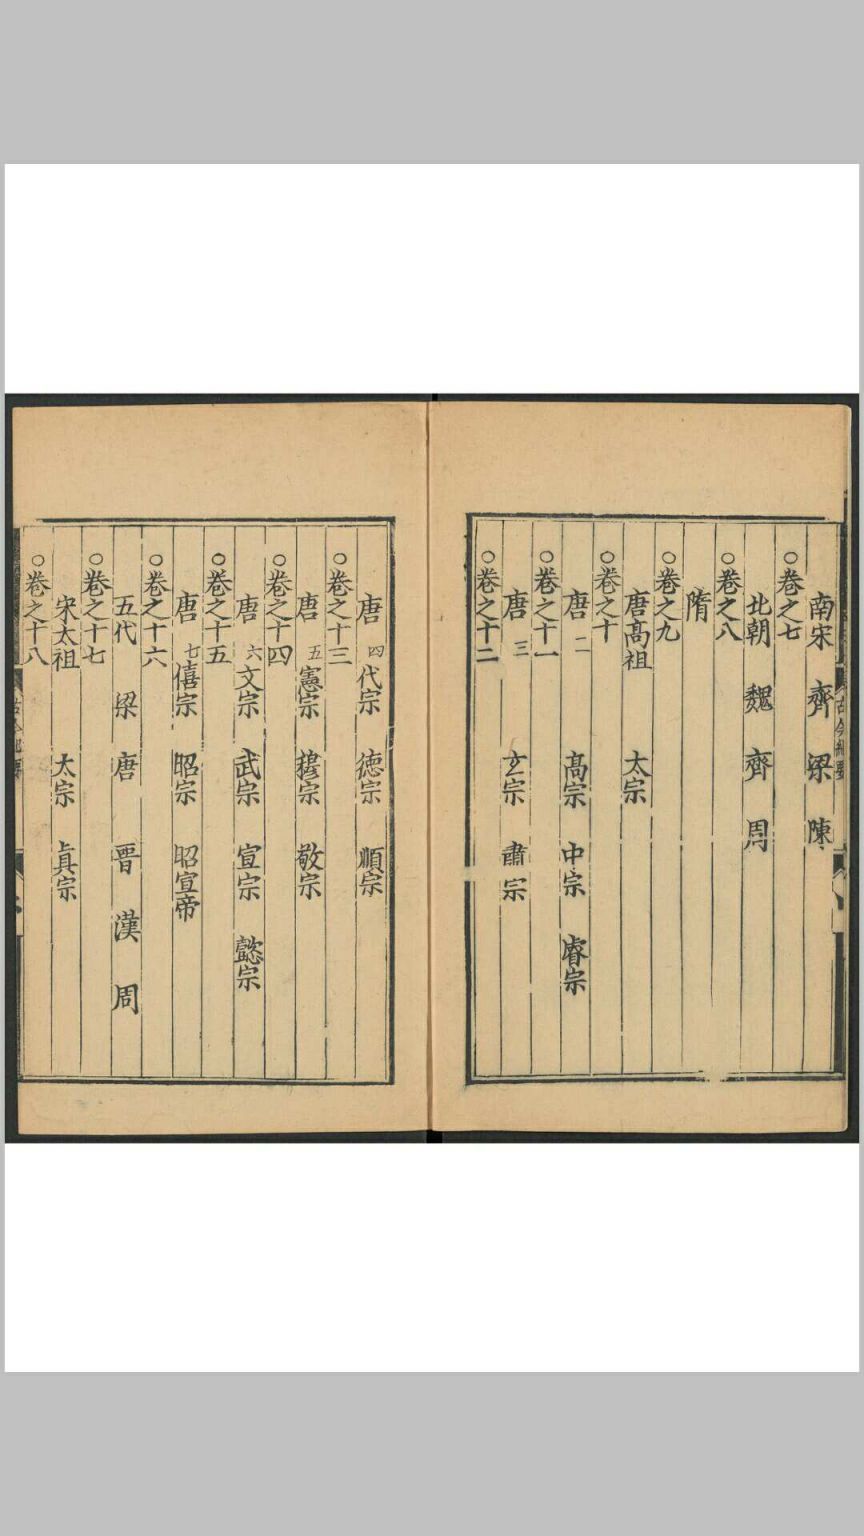 南宋 齊 梁 陳
○卷之七
北朝 魏 齊 周
○卷之八
隋
○卷之九
唐高祖 太宗
○卷之十
唐二 高宗 中宗 睿宗
○卷之十一
唐三 玄宗 肅宗
○卷之十二
唐四 代宗 德宗 順宗
○卷之十三
唐五 憲宗 穆宗 敬宗
○卷之十四
唐六 文宗 武宗 宣宗 懿宗
○卷之十五
唐七 僖宗 昭宗 昭宣帝
○卷之十六
五代 梁 唐 晋 漢 周
○卷之十七
宋太祖 太宗 真宗
○卷之十八